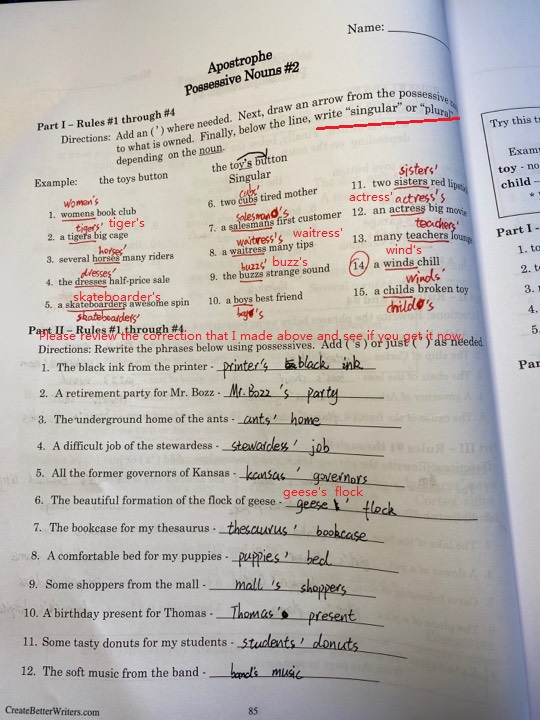 Name:
Apostrophe
Possessive Nouns #2
Part I – Rules #1 through #4
Directions: Add an (’) where needed. Next, draw an arrow from the possessive
to what is owned. Finally, below the line, write “singular” or “plural”
depending on the noun.
Example: the toys button
the toy's button
Singular
woman's
1. womens book club
tigers' tiger's
2. a tigers big cage
horses'
3. several horses many riders
dresses'
4. the dresses half-price sale
skateboarder's
5. a skateboarders awesome spin
skateboarders'
cubs'
6. two cubs tired mother
salesmand's
7. a salesmans first customer
waitress's waitress'
8. a waitress many tips
buzzs' buzz's
9. the buzzs strange sound
10. a boys best friend
boy's
sisters'
11. two sisters red
actress' actress's
12. an actress big movie
teachers'
13. many teachers lounge
wind's
14. a winds chill
winds'
15. a childs broken toy
child's
Part II – Rules #1 through #4.
Please review the correction that I made above and see if you get it now.
Directions: Rewrite the phrases below using possessives. Add (’s) or just (’) as needed.
1. The black ink from the printer - printer's black ink
2. A retirement party for Mr. Bozz - Mr. Bozz 's party
3. The underground home of the ants - ants' home
4. A difficult job of the stewardess - stewardess' job
5. All the former governors of Kansas - kansas' governors
geese's flock
6. The beautiful formation of the flock of geese - geese ' flock
7. The bookcase for my thesaurus - thesaurus' bookcase
8. A comfortable bed for my puppies - puppies' bed
9. Some shoppers from the mall - mall 's shoppers
10. A birthday present for Thomas - Thomas' present
11. Some tasty donuts for my students - students' donuts
12. The soft music from the band - band's music
CreateBetterWriters.com
85
Try this
Exam
toy - no
child –
Part I -
1. to
2. t
3.
4.
5.
Par